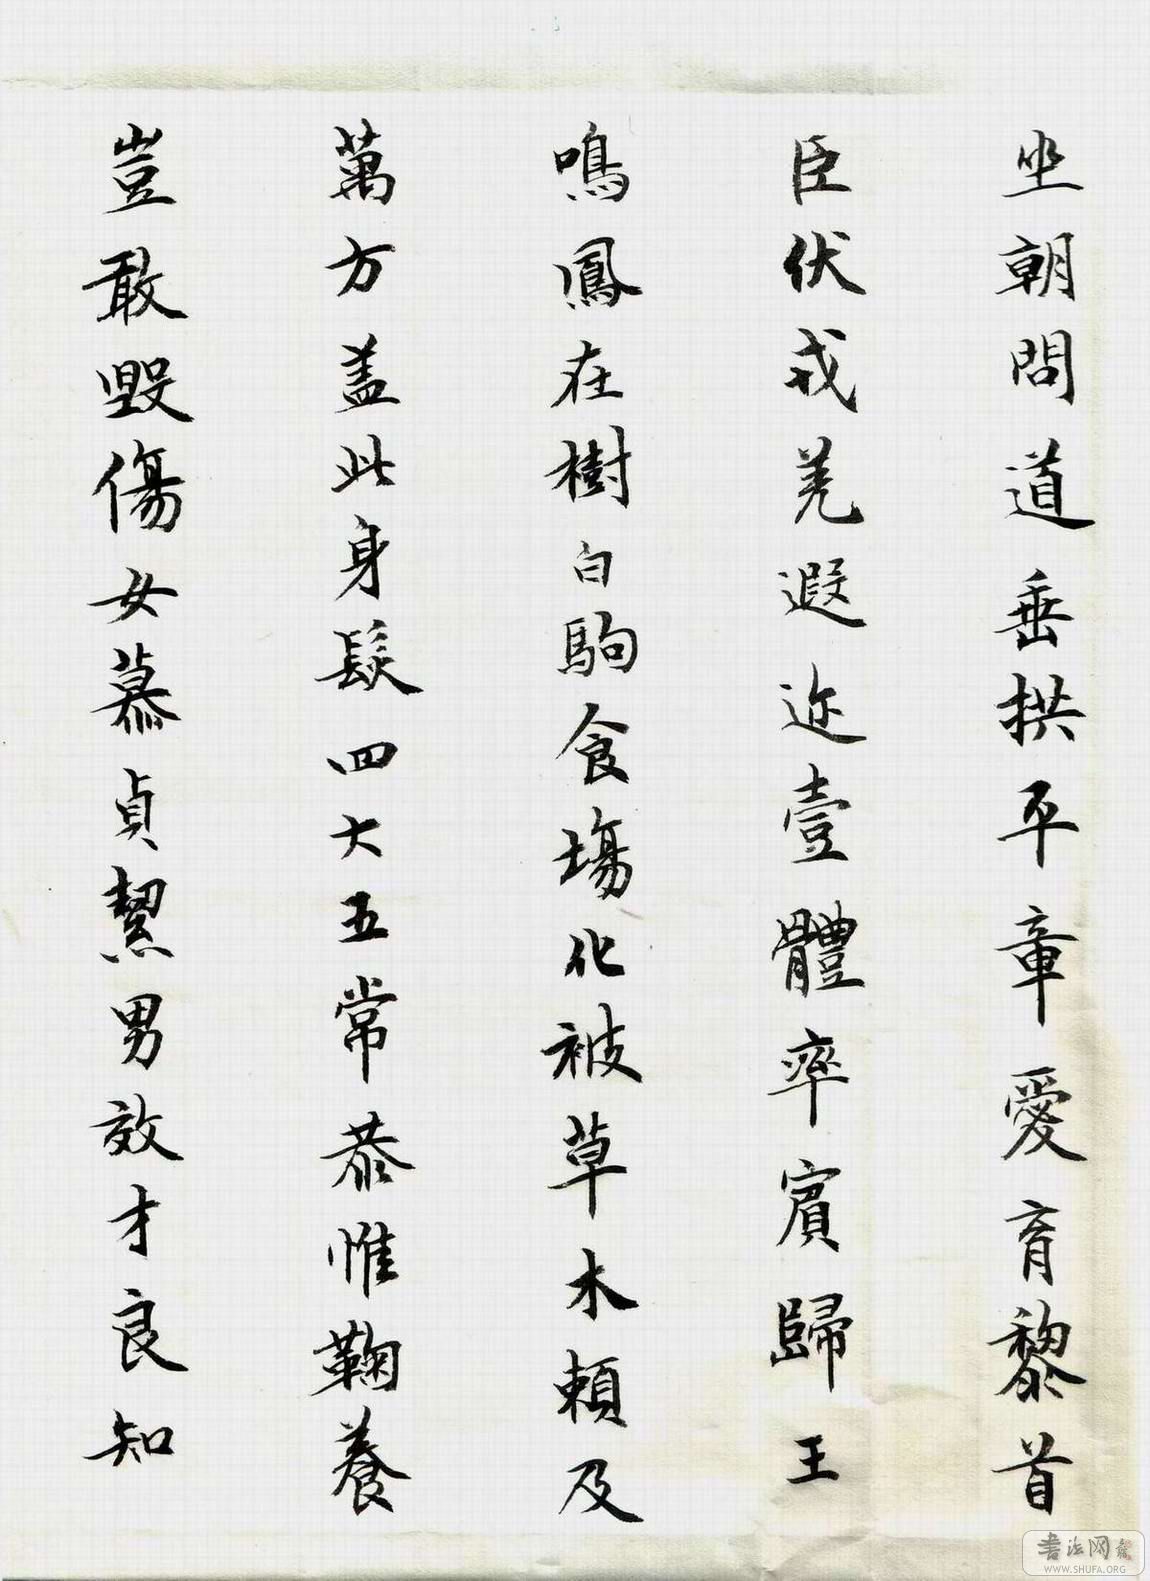 坐朝問道垂拱平章愛育黎首
臣伏戎羌遐迩壹體率賓歸王
鳴鳳在樹白駒食場化被草木賴及
萬方盖此身髮四大五常恭惟鞠養
豈敢毀傷女慕貞絜男效才良知
书法网
WWW.SHUFA.ORG